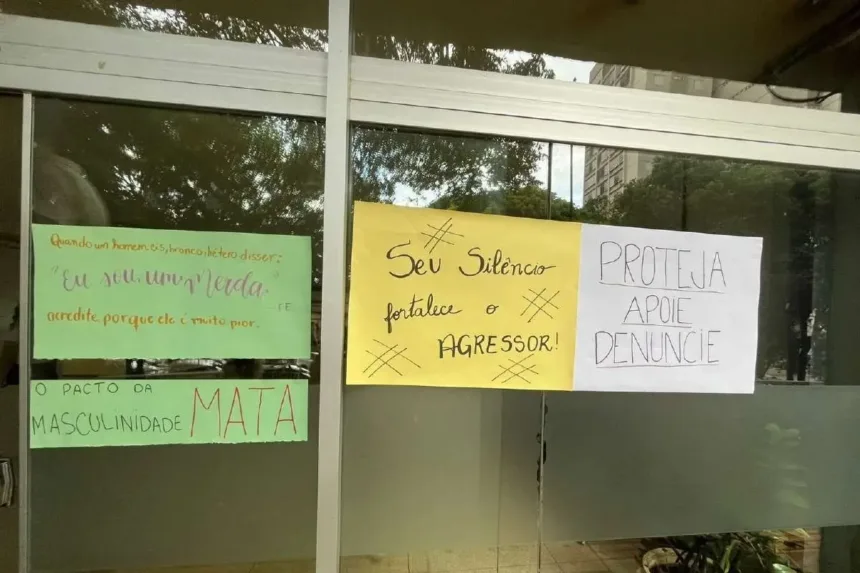 Quando um homem cis, branco, hétero disser:
"Eu sou um Merda"
acredite, porque ele é muito pior.
O PACTO DA
MASCULINIDADE MATA
Seu Silêncio
fortalece o
AGRESSOR!
PROTEJA
APOIE
DENUNCIE